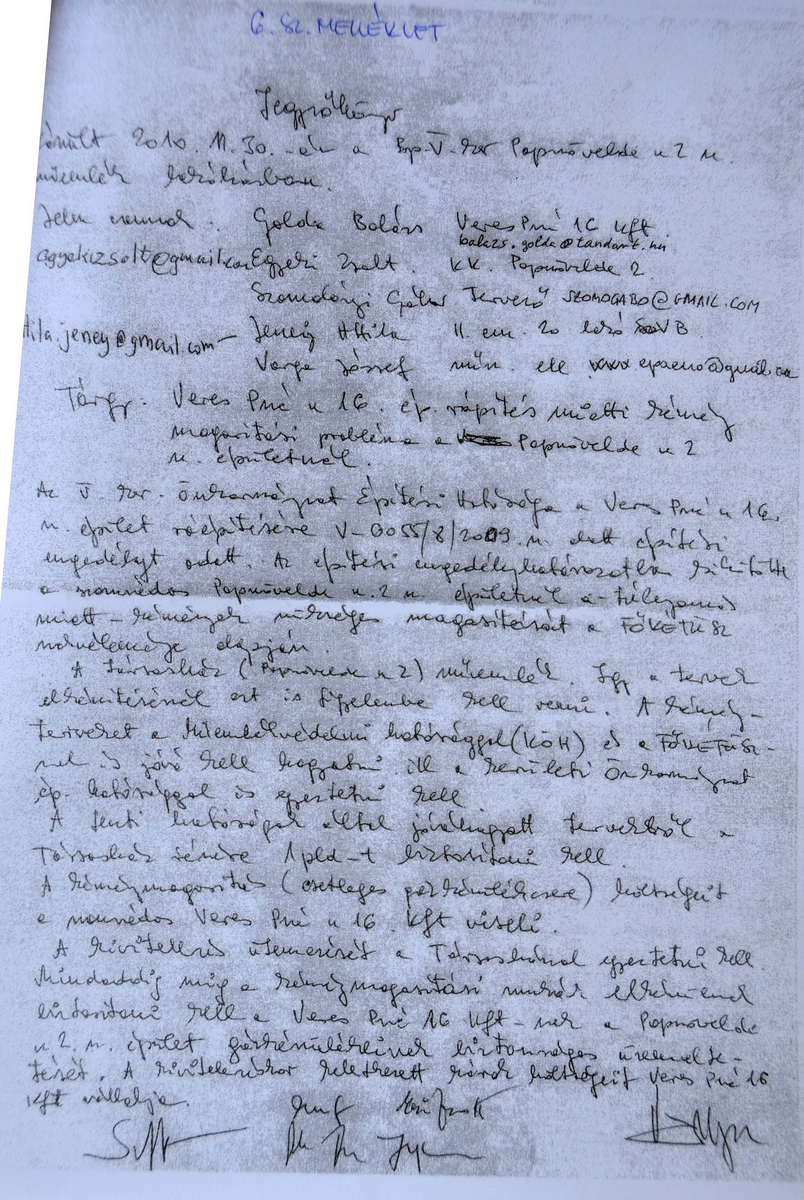 6. SZ. MELLÉKLET
Jegyzőkönyv
Készült 2010. 11. 30.-án a Bp. V. ker Papnövelde u 2 sz.
műemlék lakóházban.
Jelen vannak: Golda Balázs Veres Pné 16 kft
balazs.golda@tandark.hu
agyakizsolt@gmail.com Egyeki Zsolt. KK. Papnövelde 2
Gábor Tervező SZOMOGABO@GMAIL.COM
attila.jeney@gmail.com – Jeney Attila II. em. 20 lakó SZVB
Varga József műsz. ell epaeno@gmail.com
Tárgy: Veres Pné u 16. ép. ráépítés miatti kémény
magasítási probléma a Papnövelde u 2
sz. épületnél.
Az V. ker. Önkormányzat Építési Hatósága a Veres Pné u 16.
sz. épület ráépítésére V-0055/8/2009 sz. alatt építési
engedélyt adott. Az építési engedélyhatározatban kikötötte
a szomszédos Papnövelde u. 2 sz. épületnél a túlépzés
miatt – kémények szükséges magasítását a FŐKÉTÜSZ
szakvéleménye alapján.
A társasház (Papnövelde u 2) műemlék. Így a tervek
elkészítésénél ezt is figyelembe kell venni. A kémény-
terveket a Műemlékvédelmi hatósággal (KÖH) és a FŐKÉTÜSZ-
szel is jóvá kell hagyatni ill a kerületi Önkormányzat
ép. hatósággal is egyeztetni kell.
A fenti hatóságok által jóváhagyott tervekből a
Társasház részére 1 pld-t biztosítani kell.
A kéménymagasítás (esetleges gázkészülékcsere) költségeit
a szomszédos Veres Pné u 16. Kft viseli.
A kivitelezés ütemezését a Társasházzal egyeztetni kell.
Mindaddig míg a kéménymagasítási munkák elkészülnek
biztosítani kell a Veres Pné 16 Kft-nek a Papnövelde
u 2. sz. épület gázkészülékeinek biztonságos üzemelte-
tését. A kivitelezéskor keletkezett károk költségeit Veres Pné 16
Kft vállalja.